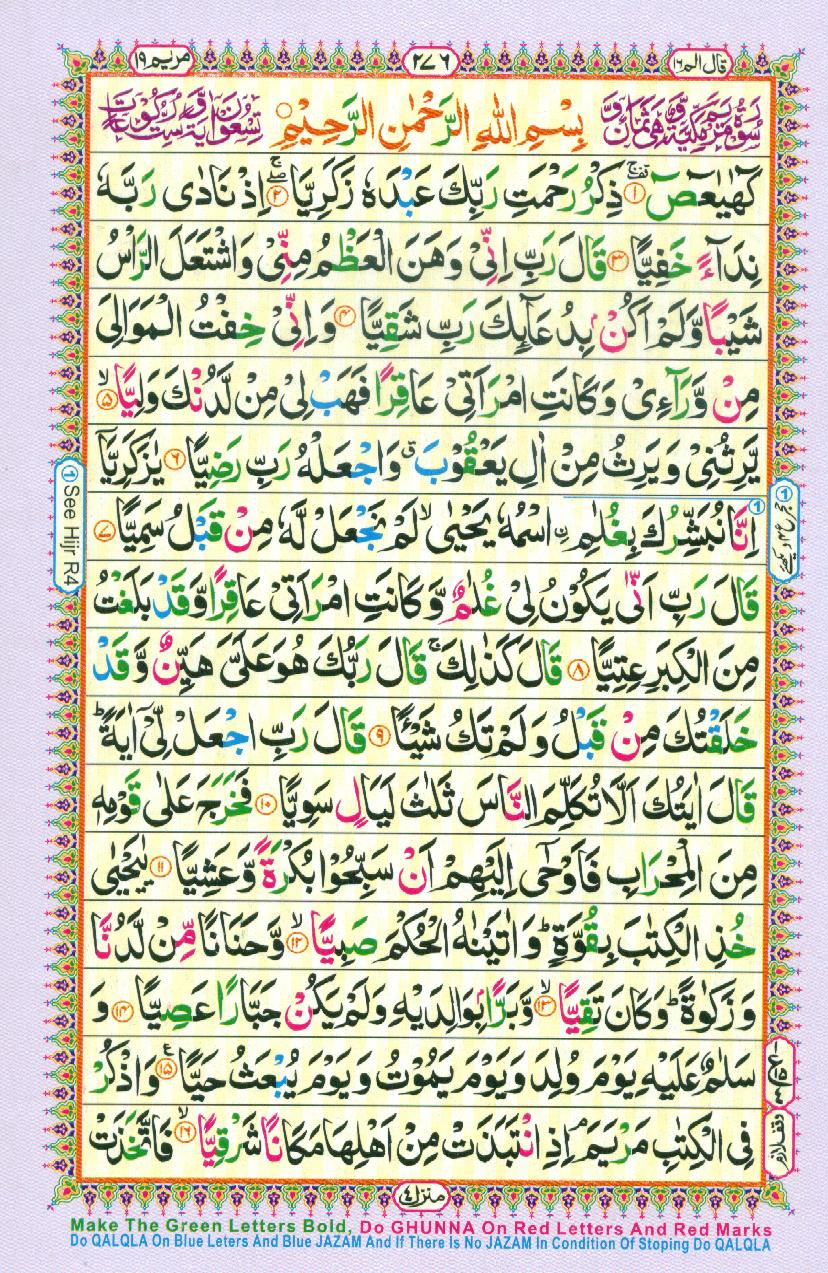 قال الم ١٦
٢٧٦
مریم ١٩
سُوْرَةُ مَرْيَمَ مَكِّيَّةٌ وَّهِيَ ثَمَانٌ وَّ
بِسْمِ اللهِ الرَّحْمٰنِ الرَّحِيْمِ
تِسْعُوْنَ اٰيَةً وَّسِتُّ رُكُوْعَاتٍ
كٓهٰيٰعٓصٓ ١ ذِكْرُ رَحْمَتِ رَبِّكَ عَبْدَهٗ زَكَرِيَّا ٢ اِذْ نَادٰى رَبَّهٗ
نِدَآءً خَفِيًّا ٣ قَالَ رَبِّ اِنِّىْ وَهَنَ الْعَظْمُ مِنِّىْ وَاشْتَعَلَ الرَّاْسُ
شَيْبًا وَّلَمْ اَكُنْۢ بِدُعَآئِكَ رَبِّ شَقِيًّا ٤ وَاِنِّىْ خِفْتُ الْمَوَالِىَ
مِنْ وَّرَآءِىْ وَكَانَتِ امْرَاَتِىْ عَاقِرًا فَهَبْ لِىْ مِنْ لَّدُنْكَ وَلِيًّا ۙ ٥
يَّرِثُنِىْ وَيَرِثُ مِنْ اٰلِ يَعْقُوْبَ ۖ ق وَاجْعَلْهُ رَبِّ رَضِيًّا ٦ يٰزَكَرِيَّآ
اِنَّا نُبَشِّرُكَ بِغُلٰمِ ِۨاسْمُهٗ يَحْيٰى ۙ لَمْ نَجْعَلْ لَّهٗ مِنْ قَبْلُ سَمِيًّا ٧
قَالَ رَبِّ اَنّٰى يَكُوْنُ لِىْ غُلٰمٌ وَّكَانَتِ امْرَاَتِىْ عَاقِرًا وَّقَدْ بَلَغْتُ
مِنَ الْكِبَرِ عِتِيًّا ٨ قَالَ كَذٰلِكَ ۚ قَالَ رَبُّكَ هُوَ عَلَىَّ هَيِّنٌ وَّقَدْ
خَلَقْتُكَ مِنْ قَبْلُ وَلَمْ تَكُ شَيْـًٔا ٩ قَالَ رَبِّ اجْعَلْ لِّىْٓ اٰيَةً ؕ
قَالَ اٰيَتُكَ اَلَّا تُكَلِّمَ النَّاسَ ثَلٰثَ لَيَالٍ سَوِيًّا ١٠ فَخَرَجَ عَلٰى قَوْمِهٖ
مِنَ الْمِحْرَابِ فَاَوْحٰٓى اِلَيْهِمْ اَنْ سَبِّحُوْا بُكْرَةً وَّعَشِيًّا ١١ يٰيَحْيٰى
خُذِ الْكِتٰبَ بِقُوَّةٍ ؕ وَاٰتَيْنٰهُ الْحُكْمَ صَبِيًّا ۙ ١٢ وَّحَنَانًا مِّنْ لَّدُنَّا
وَزَكٰوةً ؕ وَكَانَ تَقِيًّا ۙ ١٣ وَّبَرًّۢا بِوَالِدَيْهِ وَلَمْ يَكُنْ جَبَّارًا عَصِيًّا ١٤ وَ
سَلٰمٌ عَلَيْهِ يَوْمَ وُلِدَ وَيَوْمَ يَمُوْتُ وَيَوْمَ يُبْعَثُ حَيًّا ١٥ ع وَاذْكُرْ
فِى الْكِتٰبِ مَرْيَمَ ۘ اِذِ انْتَبَذَتْ مِنْ اَهْلِهَا مَكَانًا شَرْقِيًّا ۙ ١٦ فَاتَّخَذَتْ
See Hijr R4
وقف لازم
منزل ٤
Make The Green Letters Bold, Do GHUNNA On Red Letters And Red Marks
Do QALQLA On Blue Leters And Blue JAZAM And If There Is No JAZAM In Condition Of Stoping Do QALQLA